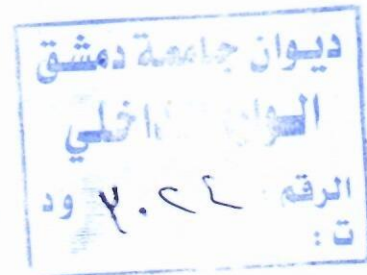 ديوان جامعة دمشق
الوارد الداخلي
الرقم ٣٠٢٤ ود
ت :